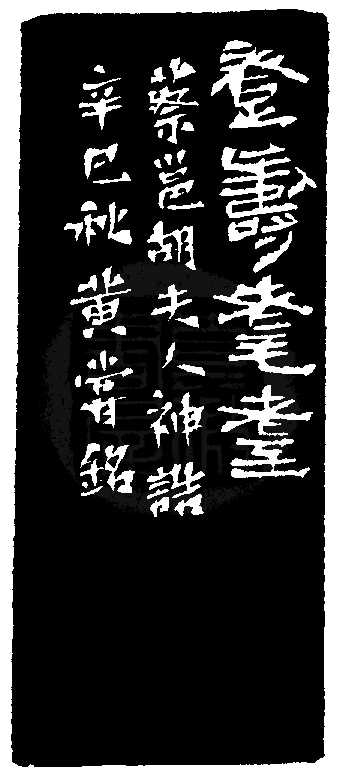 登壽耄耋
蔡邕胡夫人神誥
辛巳秋黄嘗銘